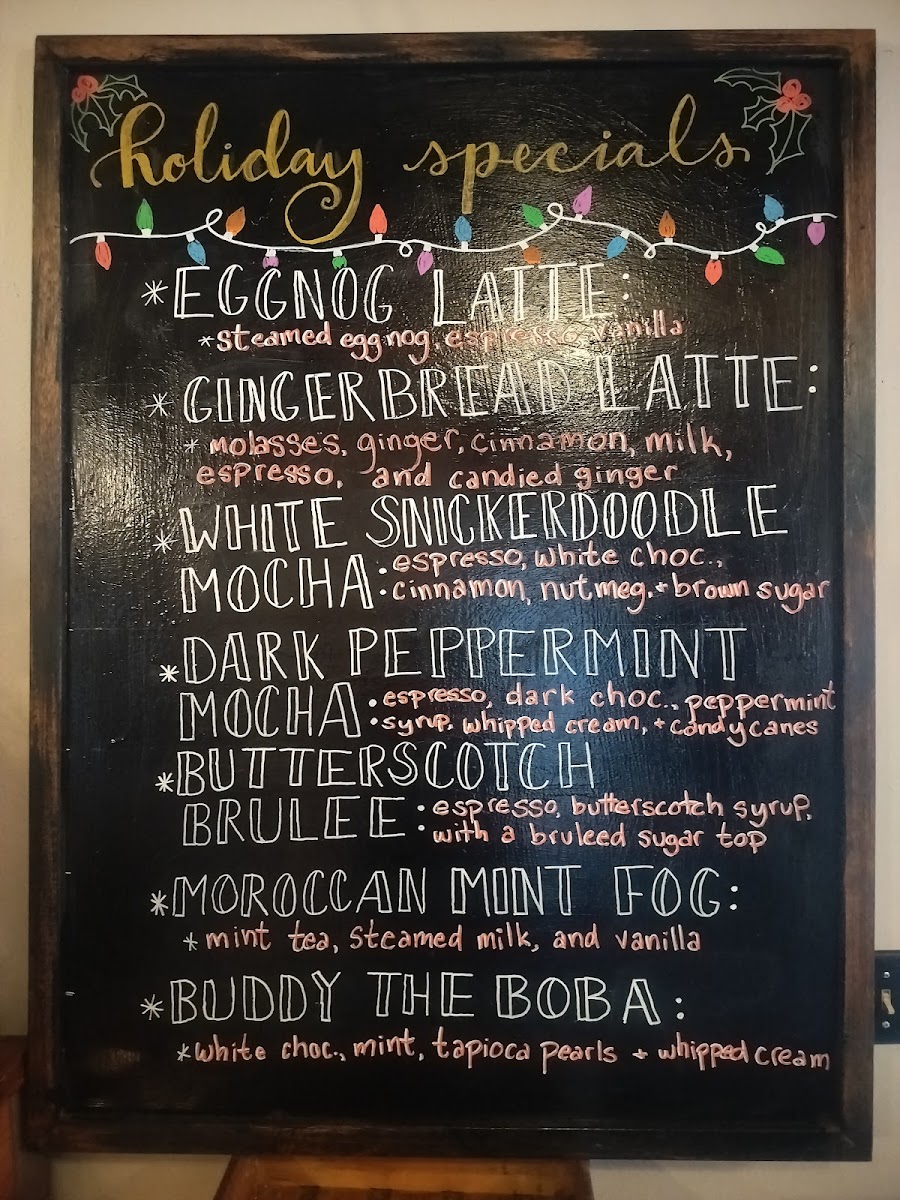 holiday specials
*EGGNOG LATTE:
*steamed eggnog, espresso, vanilla
*GINGERBREAD LATTE:
*molasses, ginger, cinnamon, milk,
espresso, and candied ginger
*WHITE SNICKERDOODLE
MOCHA: espresso, white choc.,
cinnamon, nutmeg, + brown sugar
*DARK PEPPERMINT
MOCHA: espresso, dark choc., peppermint
syrup, whipped cream, + candy canes
*BUTTERSCOTCH
BRULEE: espresso, butterscotch syrup,
with a bruleed sugar top
*MOROCCAN MINT FOG:
*mint tea, steamed milk, and vanilla
*BUDDY THE BOBA:
*white choc., mint, tapioca pearls + whipped cream